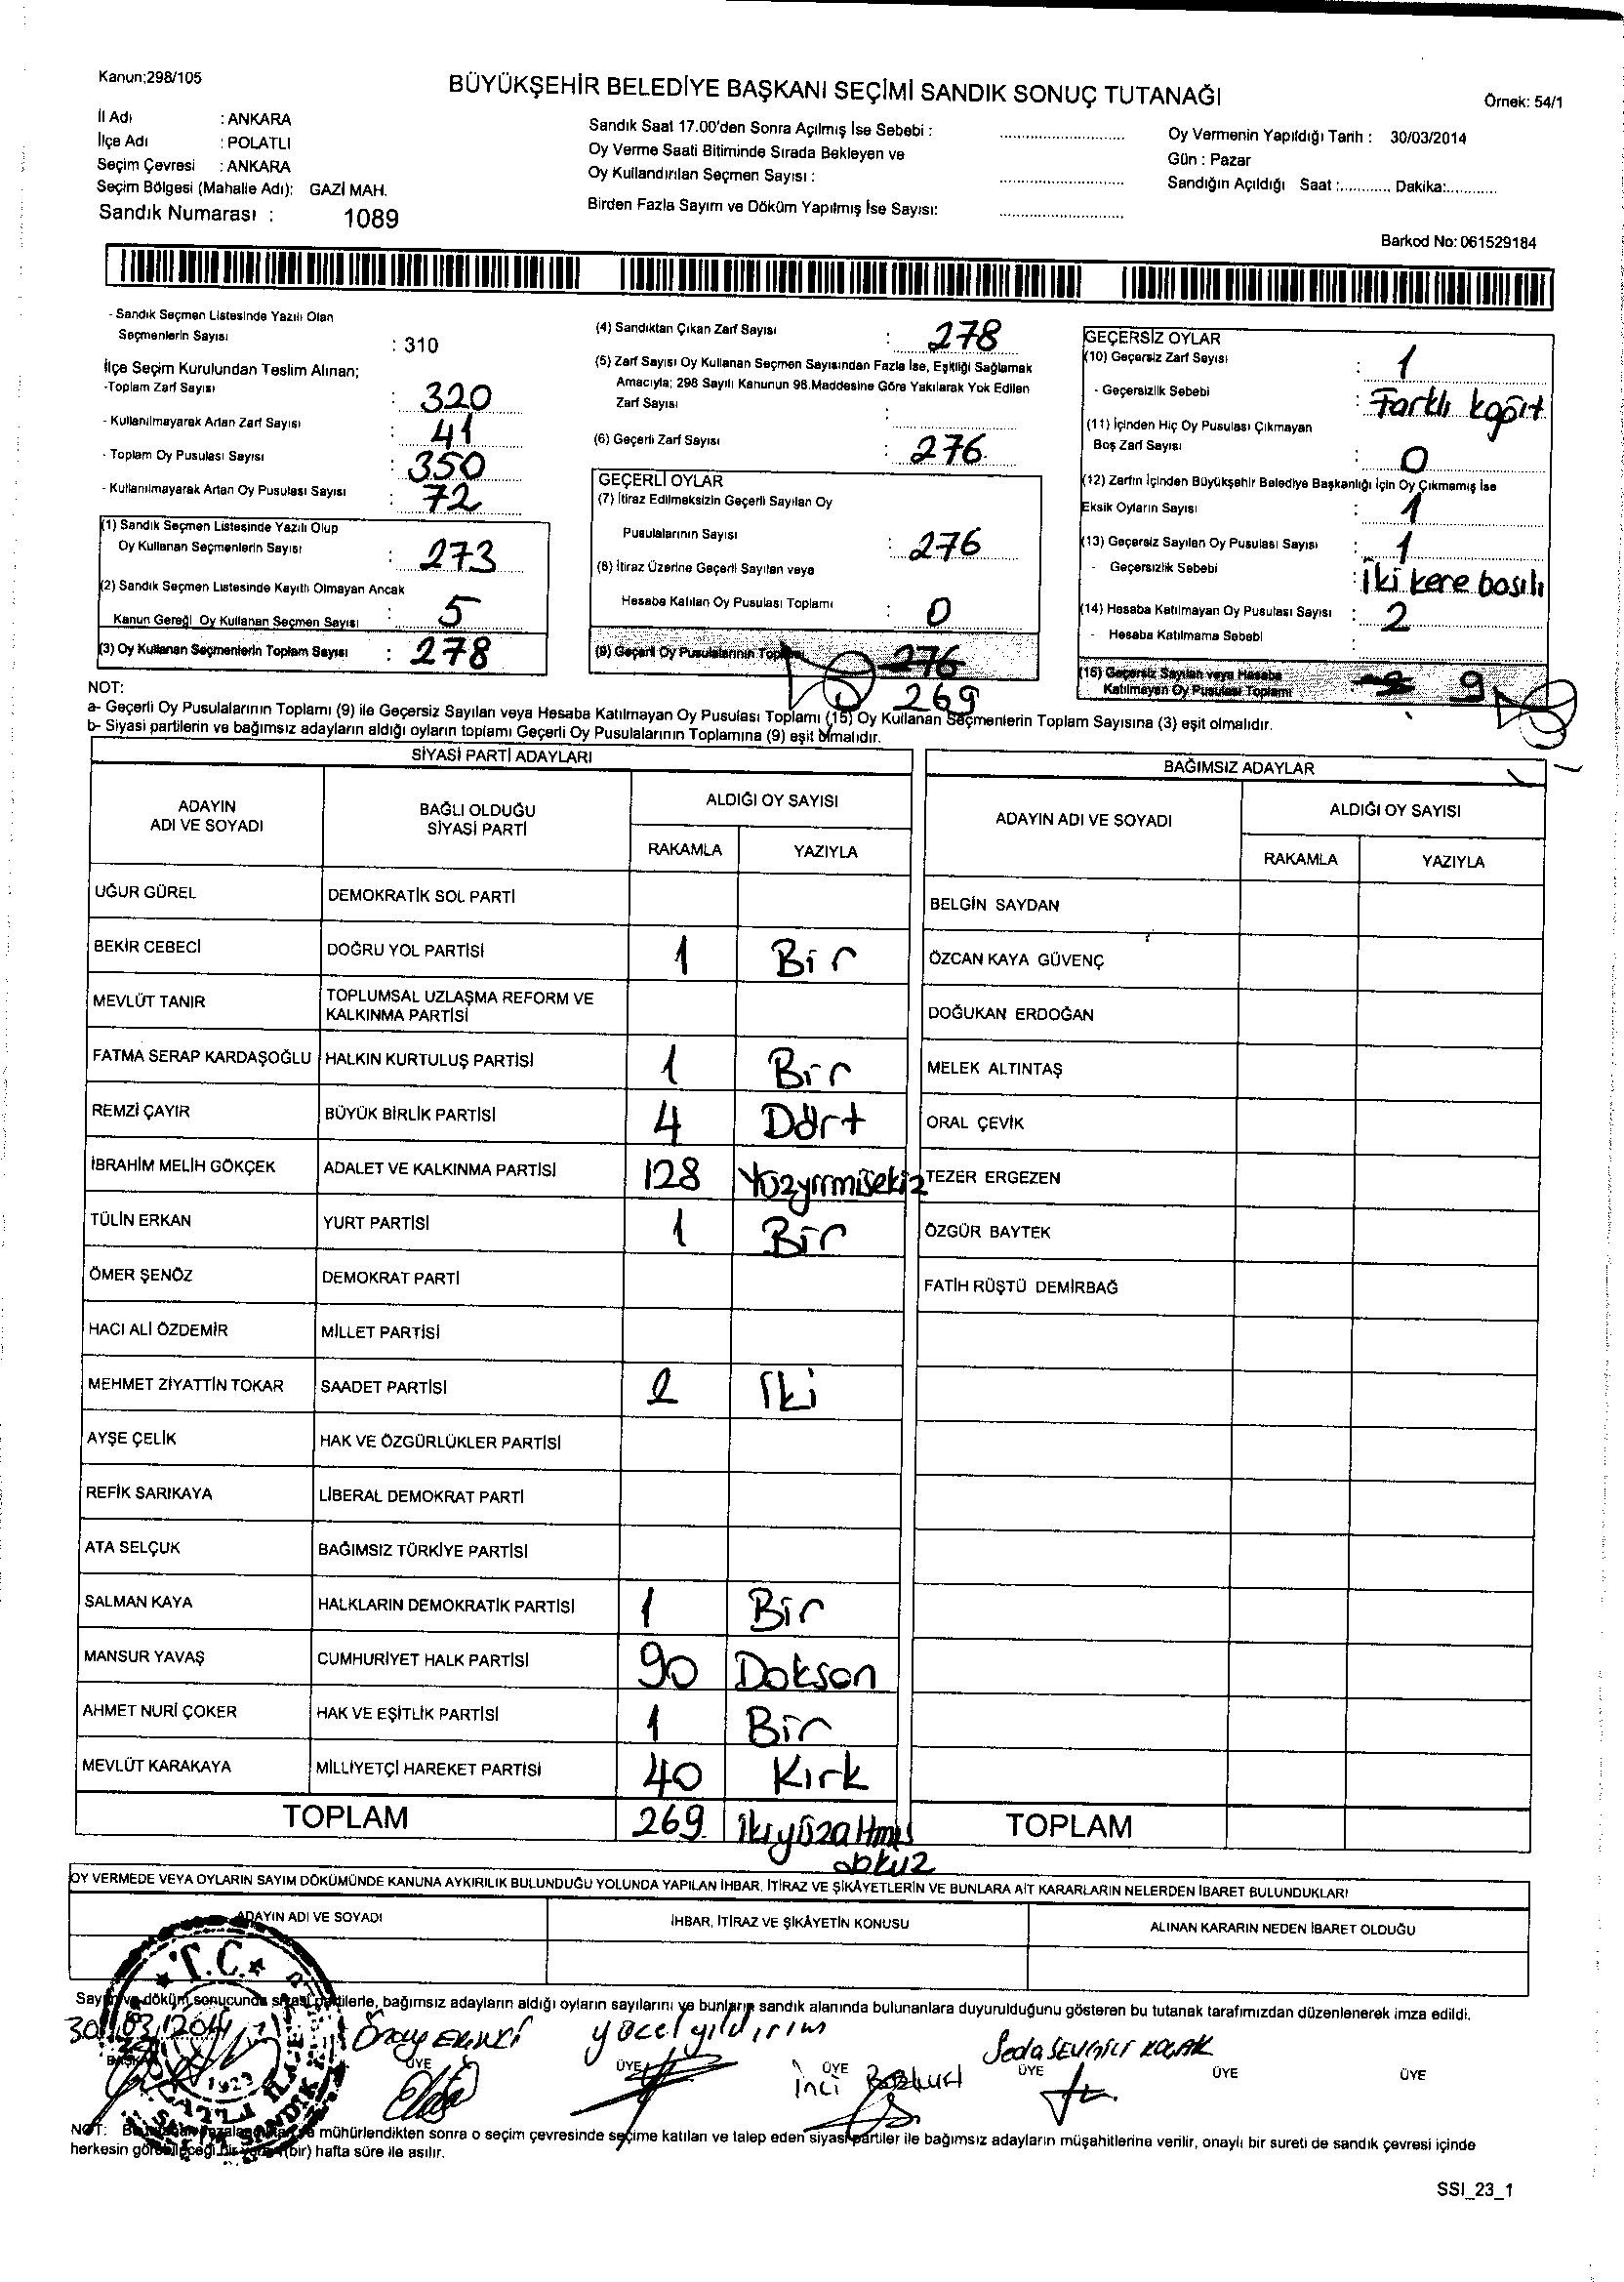 Kanun:298/105
BÜYÜKŞEHİR BELEDİYE BAŞKANI SEÇİMİ SANDIK SONUÇ TUTANAĞI
Örnek: 54/1
İl Adı : ANKARA
İlçe Adı : POLATLI
Seçim Çevresi : ANKARA
Seçim Bölgesi (Mahalle Adı): GAZİ MAH.
Sandık Numarası : 1089
Sandık Saat 17.00'den Sonra Açılmış İse Sebebi :
Oy Verme Saati Bitiminde Sırada Bekleyen ve
Oy Kullandırılan Seçmen Sayısı :
Birden Fazla Sayım ve Döküm Yapılmış İse Sayısı:
Oy Vermenin Yapıldığı Tarih : 30/03/2014
Gün : Pazar
Sandığın Açıldığı Saat :............ Dakika:............
Barkod No: 061529184
- Sandık Seçmen Listesinde Yazılı Olan
Seçmenlerin Sayısı : 310
İlçe Seçim Kurulundan Teslim Alınan;
-Toplam Zarf Sayısı : 320
- Kullanılmayarak Artan Zarf Sayısı : 41
- Toplam Oy Pusulası Sayısı : 350
- Kullanılmayarak Artan Oy Pusulası Sayısı : 72
(1) Sandık Seçmen Listesinde Yazılı Olup
Oy Kullanan Seçmenlerin Sayısı : 273
(2) Sandık Seçmen Listesinde Kayıtlı Olmayan Ancak
Kanun Gereği Oy Kullanan Seçmen Sayısı : 5
(3) Oy Kullanan Seçmenlerin Toplam Sayısı : 278
(4) Sandıktan Çıkan Zarf Sayısı : 278
(5) Zarf Sayısı Oy Kullanan Seçmen Sayısından Fazla İse, Eşitliği Sağlamak
Amacıyla; 298 Sayılı Kanunun 98.Maddesine Göre Yakılarak Yok Edilen
Zarf Sayısı :
(6) Geçerli Zarf Sayısı : 276
GEÇERLİ OYLAR
(7) İtiraz Edilmeksizin Geçerli Sayılan Oy
Pusulalarının Sayısı : 276
(8) İtiraz Üzerine Geçerli Sayılan veya
Hesaba Katılan Oy Pusulası Toplamı : 0
(9) Geçerli Oy Pusulalarının Toplamı 276
269
GEÇERSİZ OYLAR
(10) Geçersiz Zarf Sayısı : 1
- Geçersizlik Sebebi : Farklı kağıt
(11) İçinden Hiç Oy Pusulası Çıkmayan
Boş Zarf Sayısı : 0
(12) Zarfın İçinden Büyükşehir Belediye Başkanlığı İçin Oy Çıkmamış İse
Eksik Oyların Sayısı : 1
(13) Geçersiz Sayılan Oy Pusulası Sayısı : 1
- Geçersizlik Sebebi : iki kere basılı
(14) Hesaba Katılmayan Oy Pusulası Sayısı : 2
- Hesaba Katılmama Sebebi :
(15) Geçersiz Sayılan veya Hesaba
Katılmayan Oy Pusulası Toplamı 9
NOT:
a- Geçerli Oy Pusulalarının Toplamı (9) ile Geçersiz Sayılan veya Hesaba Katılmayan Oy Pusulası Toplamı (15) Oy Kullanan Seçmenlerin Toplam Sayısına (3) eşit olmalıdır.
b- Siyasi partilerin ve bağımsız adayların aldığı oyların toplamı Geçerli Oy Pusulalarının Toplamına (9) eşit olmalıdır.
SİYASİ PARTİ ADAYLARI
ADAYIN ADI VE SOYADI
BAĞLI OLDUĞU SİYASİ PARTİ
ALDIĞI OY SAYISI
RAKAMLA YAZIYLA
UĞUR GÜREL DEMOKRATİK SOL PARTİ
BEKİR CEBECİ DOĞRU YOL PARTİSİ 1 Bir
MEVLÜT TANIR TOPLUMSAL UZLAŞMA REFORM VE
KALKINMA PARTİSİ
FATMA SERAP KARDAŞOĞLU HALKIN KURTULUŞ PARTİSİ 1 Bir
REMZİ ÇAYIR BÜYÜK BİRLİK PARTİSİ 4 Dört
İBRAHİM MELİH GÖKÇEK ADALET VE KALKINMA PARTİSİ 128 Yüzyirmisekiz
TÜLİN ERKAN YURT PARTİSİ 1 Bir
ÖMER ŞENÖZ DEMOKRAT PARTİ
HACI ALİ ÖZDEMİR MİLLET PARTİSİ
MEHMET ZİYATTİN TOKAR SAADET PARTİSİ 2 İki
AYŞE ÇELİK HAK VE ÖZGÜRLÜKLER PARTİSİ
REFİK SARIKAYA LİBERAL DEMOKRAT PARTİ
ATA SELÇUK BAĞIMSIZ TÜRKİYE PARTİSİ
SALMAN KAYA HALKLARIN DEMOKRATİK PARTİSİ 1 Bir
MANSUR YAVAŞ CUMHURİYET HALK PARTİSİ 90 Doksan
AHMET NURİ ÇOKER HAK VE EŞİTLİK PARTİSİ 1 Bir
MEVLÜT KARAKAYA MİLLİYETÇİ HAREKET PARTİSİ 40 Kırk
TOPLAM 269 ikiyüzaltmış
dokuz
BAĞIMSIZ ADAYLAR
ADAYIN ADI VE SOYADI
ALDIĞI OY SAYISI
RAKAMLA YAZIYLA
BELGİN SAYDAN
ÖZCAN KAYA GÜVENÇ
DOĞUKAN ERDOĞAN
MELEK ALTINTAŞ
ORAL ÇEVİK
TEZER ERGEZEN
ÖZGÜR BAYTEK
FATİH RÜŞTÜ DEMİRBAĞ
TOPLAM
OY VERMEDE VEYA OYLARIN SAYIM DÖKÜMÜNDE KANUNA AYKIRILIK BULUNDUĞU YOLUNDA YAPILAN İHBAR, İTİRAZ VE ŞİKAYETLERİN VE BUNLARA AİT KARARLARIN NELERDEN İBARET BULUNDUKLARI
ADAYIN ADI VE SOYADI
İHBAR, İTİRAZ VE ŞİKAYETİN KONUSU
ALINAN KARARIN NEDEN İBARET OLDUĞU
T.C.
1923
Sayım ve döküm sonucunda siyasi partilerle, bağımsız adayların aldığı oyların sayılarını ve bunların sandık alanında bulunanlara duyurulduğunu gösteren bu tutanak tarafımızdan düzenlenerek imza edildi.
30/03/2014
Önay Ekinci yücel yıldırım inci Bozkurt Seda SEVGİLİ KOÇAK
ÜYE ÜYE ÜYE ÜYE ÜYE ÜYE
NOT: mühürlendikten sonra o seçim çevresinde seçime katılan ve talep eden siyasi partiler ile bağımsız adayların müşahitlerine verilir, onaylı bir sureti de sandık çevresi içinde
herkesin görebileceği bir yere (bir) hafta süre ile asılır.
SSI_23_1